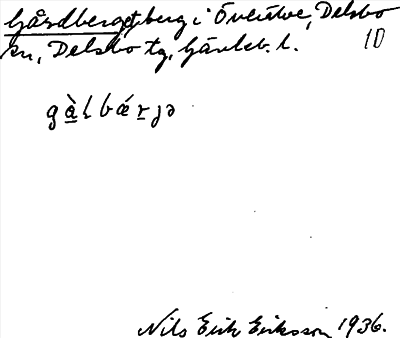 Gårdberget, berg i Överälve, Delsbo
sn, Delsbo tg, Gävleb. l. 10
gàɽbǽrjə
Nils Erik Eriksson 1936.